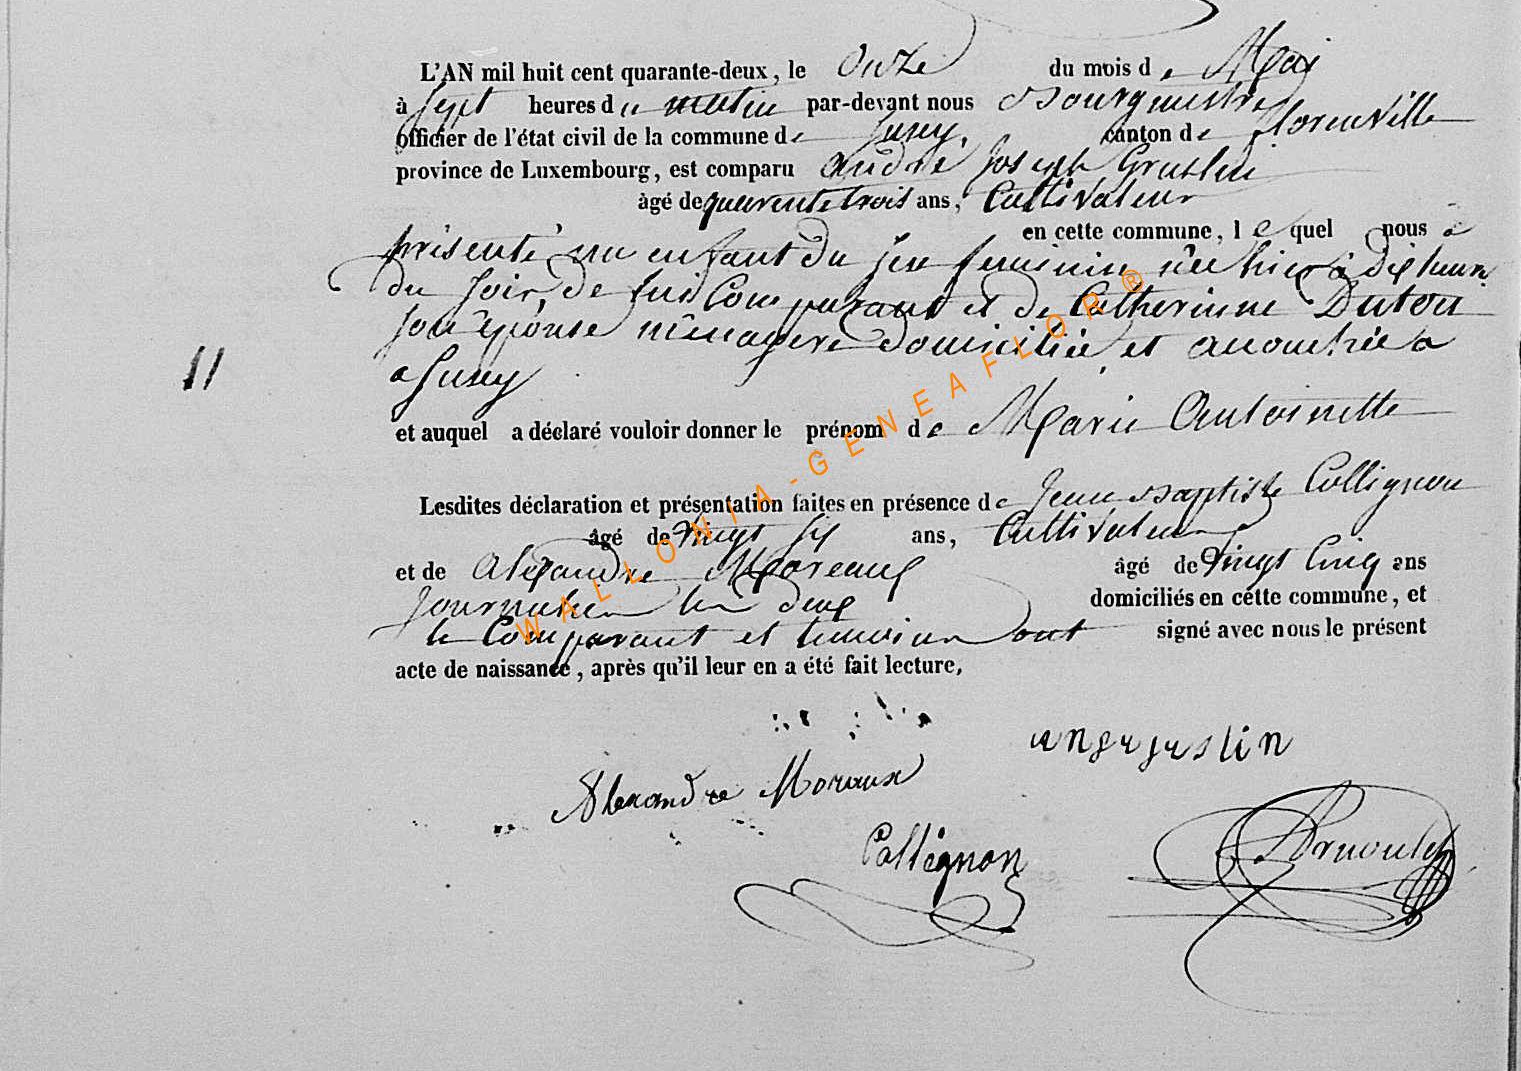 L'AN mil huit cent quarante-deux, le Onze du mois de Mai
à Sept heures du matin par-devant nous Bourgmestre
officier de l'état civil de la commune de Suxy, canton de florenville
province de Luxembourg, est comparu andré Joseph Gruslin
âgé de quarente trois ans, Cultivateur
en cette commune, lequel nous à
présenté un enfant du sex feminin née hier à dix heures
du soir, de lui Comparant et de Catherinne Dutou
son épouse menagere domiciliée et accouchée a
a Suxy
11
et auquel a déclaré vouloir donner le prénom de Marie Antoinette
Lesdites déclaration et présentation faites en présence de Jean Baptiste Collignon
âgé de vingt six ans, Cultivateur
et de Alexandre Moreaux âgé de vingt Cinq ans
Journalier les deux domiciliés en cette commune, et
le Comparant et temoins ont signé avec nous le présent
acte de naissance, après qu'il leur en a été fait lecture,
Alexandre Moraux
Collignon
WALLONIA-GENEAFLOR®